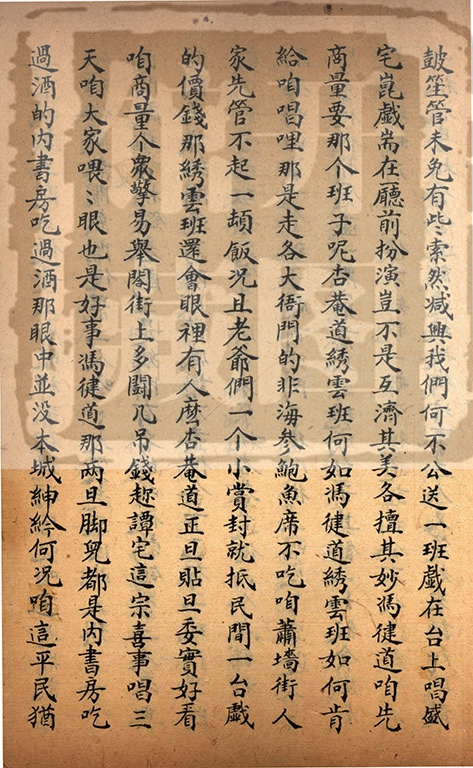 皷笙管未免有些〻索然减興我們何不公送一班戲在台上唱盛
宅崑戲耑在廳前扮演豈不是互濟其美各擅其妙馮健道咱先
商量要那个班子呢杏菴道綉雲班何如馮健道綉雲班如何肯
給咱唱哩那是走各大衙門的非海參鮑魚席不吃咱蕭墻街人
家先管不起一頓飯况且老爺們一个小賞封就抵民間一台戲
的價錢那綉雲班還會眼裡有人麽杏菴道正旦貼旦委實好看
咱商量个衆擎易舉閤街上多鬪几吊錢趂譚宅這宗喜事唱三
天咱大家喂〻眼也是好事馮健道那两旦脚兒都是内書房吃
過酒的内書房吃過酒那眼中並没本城紳衿何况咱這平民猶